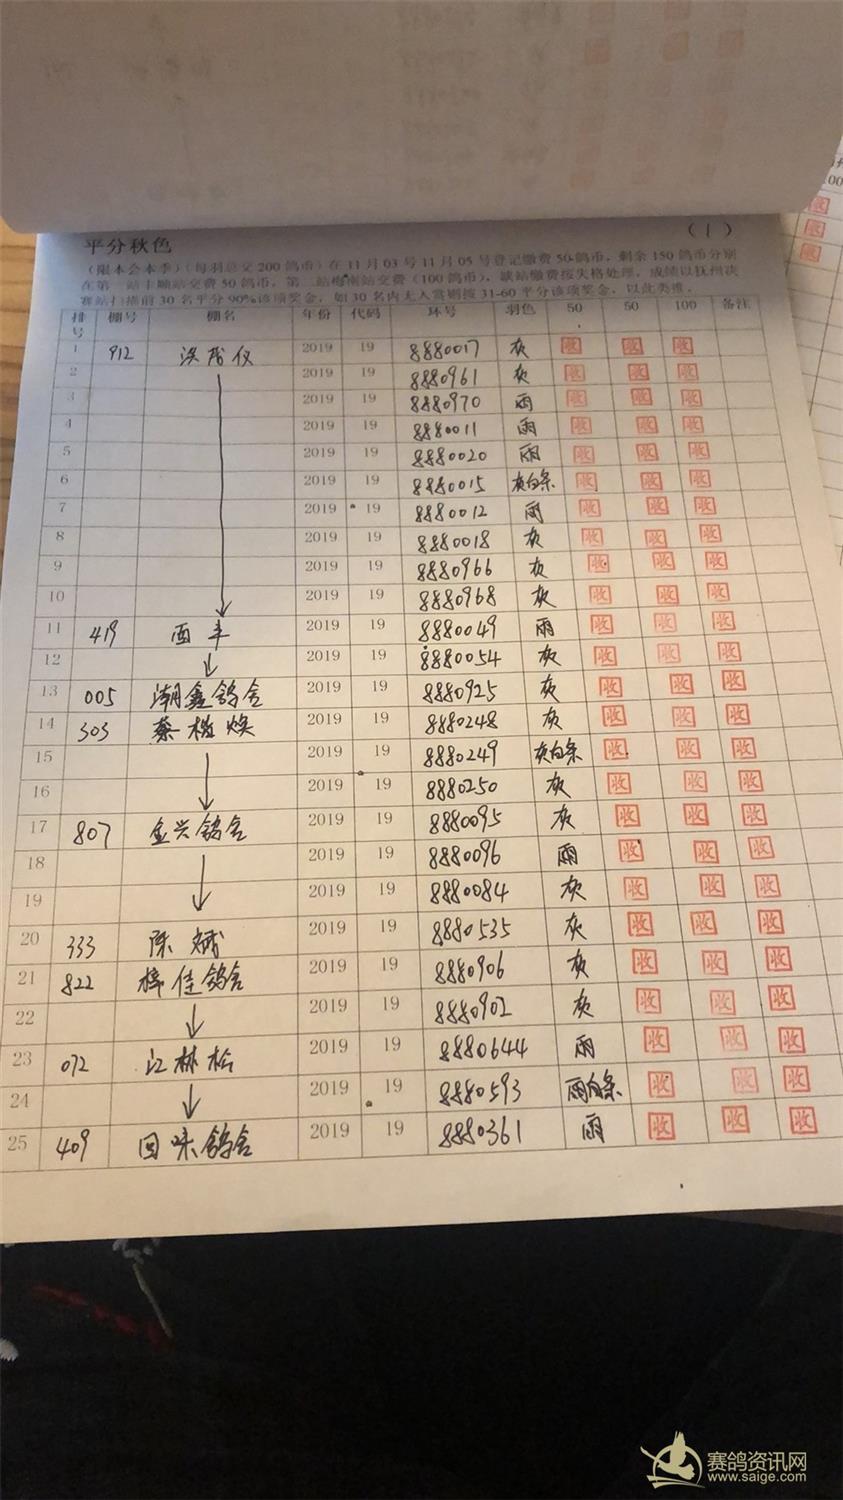 (1)
平分秋色
(限本会本季)(每羽总交200鸽币)在11月03号11月05号登记缴费50鸽币,剩余150鸽币分别
在第一站丰顺站交费50鸽币,第二站梅南站交费(100鸽币),缺站缴费按失格处理,成绩以抚州决
赛站扫描前30名平分90%该项奖金,如30名内无人赏则按31-60平分该项奖金,以此类推.
排号 棚号 棚名 年份 代码 环号 羽色 50 50 100 备注
1 912 2019 19 8880017 灰 收 收 收
2 2019 19 8880961 灰 收 收 收
3 2019 19 8880970 雨 收 收 收
4 2019 19 8880011 雨 收 收 收
5 2019 19 8880020 雨 收 收 收
6 2019 19 8880015 灰白条 收 收 收
7 2019 19 8880012 雨 收 收 收
8 2019 19 8880018 灰 收 收 收
9 2019 19 8880966 灰 收 收 收
10 2019 19 8880968 灰 收 收 收
11 419 西丰 2019 19 8880049 雨 收 收 收
12 2019 19 8880054 灰 收 收 收
13 005 潮鑫鸽舍 2019 19 8880925 灰 收 收 收
14 303 蔡 焕 2019 19 8880248 灰 收 收 收
15 2019 19 8880249 灰白条 收 收 收
16 2019 19 8880250 灰 收 收 收
17 807 金兴鸽舍 2019 19 8880095 灰 收 收 收
18 2019 19 8880096 雨 收 收 收
19 2019 19 8880084 灰 收 收 收
20 333 陈斌 2019 19 8880535 灰 收 收 收
21 822 梓佳鸽舍 2019 19 8880906 灰 收 收 收
22 2019 19 8880902 灰 收 收 收
23 072 江林松 2019 19 8880644 雨 收 收 收
24 2019 19 8880593 雨白条 收 收 收
25 409 回味鸽舍 2019 19 8880361 雨 收 收 收
赛鸽资讯网
www.saige.com